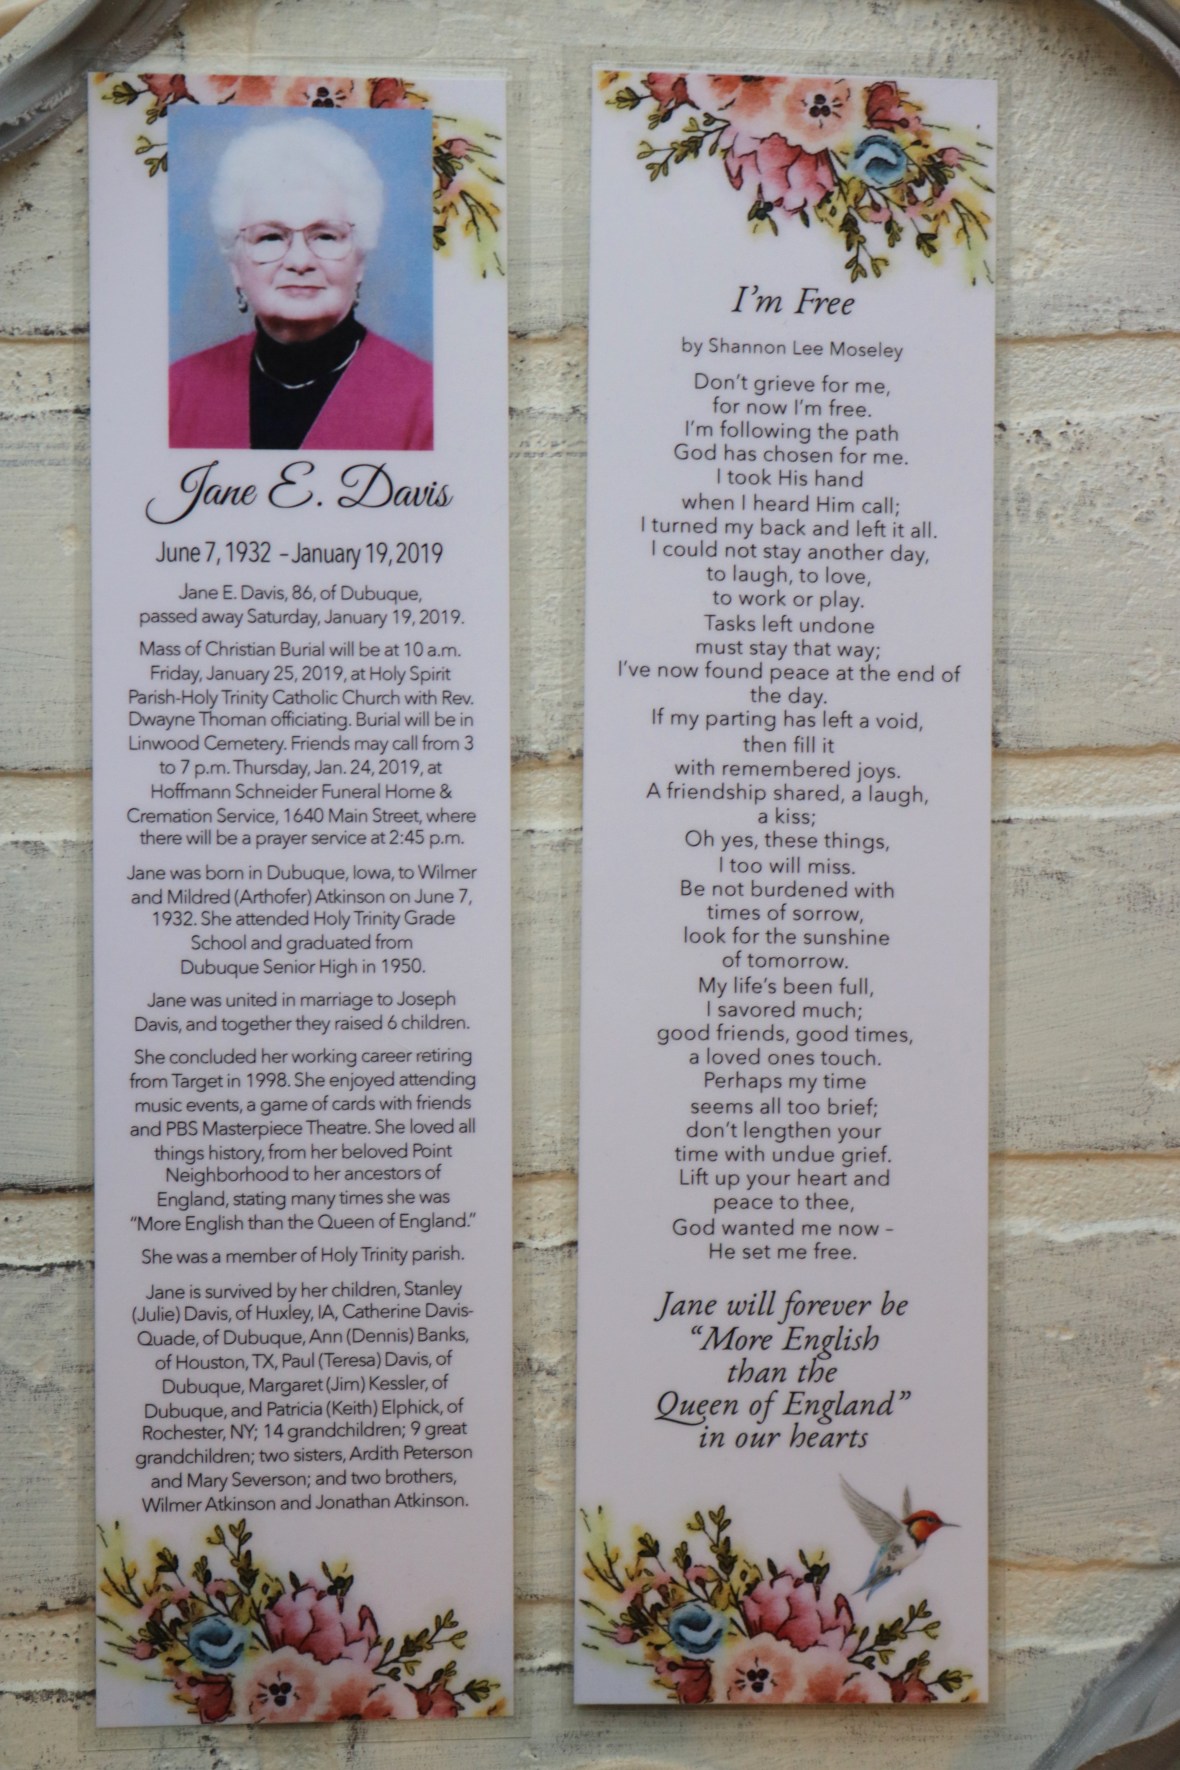 Jane E. Davis
June 7, 1932 - January 19, 2019
Jane E. Davis, 86, of Dubuque,
passed away Saturday, January 19, 2019.
Mass of Christian Burial will be at 10 a.m.
Friday, January 25, 2019, at Holy Spirit
Parish-Holy Trinity Catholic Church with Rev.
Dwayne Thoman officiating. Burial will be in
Linwood Cemetery. Friends may call from 3
to 7 p.m. Thursday, Jan. 24, 2019, at
Hoffmann Schneider Funeral Home &
Cremation Service, 1640 Main Street, where
there will be a prayer service at 2:45 p.m.
Jane was born in Dubuque, Iowa, to Wilmer
and Mildred (Arthofer) Atkinson on June 7,
1932. She attended Holy Trinity Grade
School and graduated from
Dubuque Senior High in 1950.
Jane was united in marriage to Joseph
Davis, and together they raised 6 children.
She concluded her working career retiring
from Target in 1998. She enjoyed attending
music events, a game of cards with friends
and PBS Masterpiece Theatre. She loved all
things history, from her beloved Point
Neighborhood to her ancestors of
England, stating many times she was
“More English than the Queen of England.”
She was a member of Holy Trinity parish.
Jane is survived by her children, Stanley
(Julie) Davis, of Huxley, IA, Catherine Davis-
Quade, of Dubuque, Ann (Dennis) Banks,
of Houston, TX, Paul (Teresa) Davis, of
Dubuque, Margaret (Jim) Kessler, of
Dubuque, and Patricia (Keith) Elphick, of
Rochester, NY; 14 grandchildren; 9 great
grandchildren; two sisters, Ardith Peterson
and Mary Severson; and two brothers,
Wilmer Atkinson and Jonathan Atkinson.
I’m Free
by Shannon Lee Moseley
Don’t grieve for me,
for now I’m free.
I’m following the path
God has chosen for me.
I took His hand
when I heard Him call;
I turned my back and left it all.
I could not stay another day,
to laugh, to love,
to work or play.
Tasks left undone
must stay that way;
I’ve now found peace at the end of
the day.
If my parting has left a void,
then fill it
with remembered joys.
A friendship shared, a laugh,
a kiss;
Oh yes, these things,
I too will miss.
Be not burdened with
times of sorrow,
look for the sunshine
of tomorrow.
My life’s been full,
I savored much;
good friends, good times,
a loved ones touch.
Perhaps my time
seems all too brief;
don’t lengthen your
time with undue grief.
Lift up your heart and
peace to thee,
God wanted me now –
He set me free.
Jane will forever be
“More English
than the
Queen of England”
in our hearts